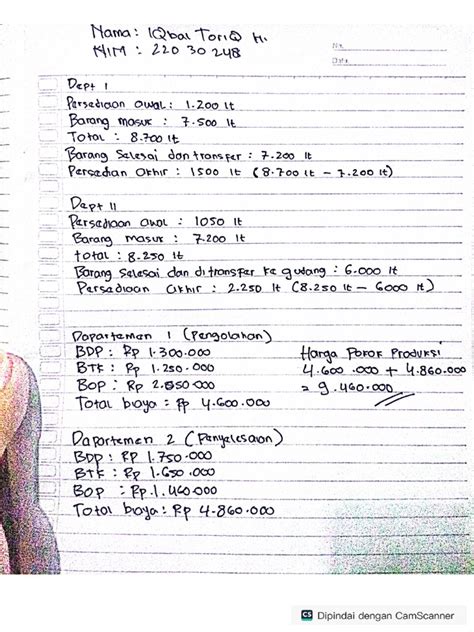 Nama: IQbal ToriQ H.
NIM : 220 30 248
No.
Date
Dept I
Persediaan awal : 1.200 lt
Barang masuk : 7.500 lt
Total : 8.700 lt
Barang Selesai dan transfer : 7.200 lt
Persedian akhir : 1500 lt (8.700 lt - 7.200 lt)
Dept II
Persediaan awal : 1050 lt
Barang masuk : 7.200 lt
total : 8.250 lt
Barang selesai dan di transfer ke gudang : 6.000 lt
Persediaan akhir : 2.250 lt (8.250 lt - 6000 lt)
Departemen 1 (Pengolahan)
BDP : Rp 1.300.000
BTK : Rp 1.250.000
BOP : Rp 2.050.000
Total biaya : Rp 4.600.000
Harga Pokok Produksi
4.600.000 + 4.860.000
= 9.460.000
Departemen 2 (Penyelesaian)
BDP : RP 1.750.000
BTK : Rp 1.650.000
BOP : Rp. 1.460.000
Total biaya : Rp 4.860.000
CS Dipindai dengan CamScanner